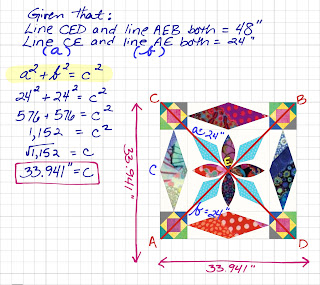 Given that:
Line CED and line AEB both = 48"
Line CE and line AE both = 24"
(a) (b)
a² + b² = c²
24² + 24² = c²
576 + 576 = c²
1,152 = c²
√1,152 = c
33.941" = c
C B
a=24"
E
33.941" C
b=24"
A D
33.941"